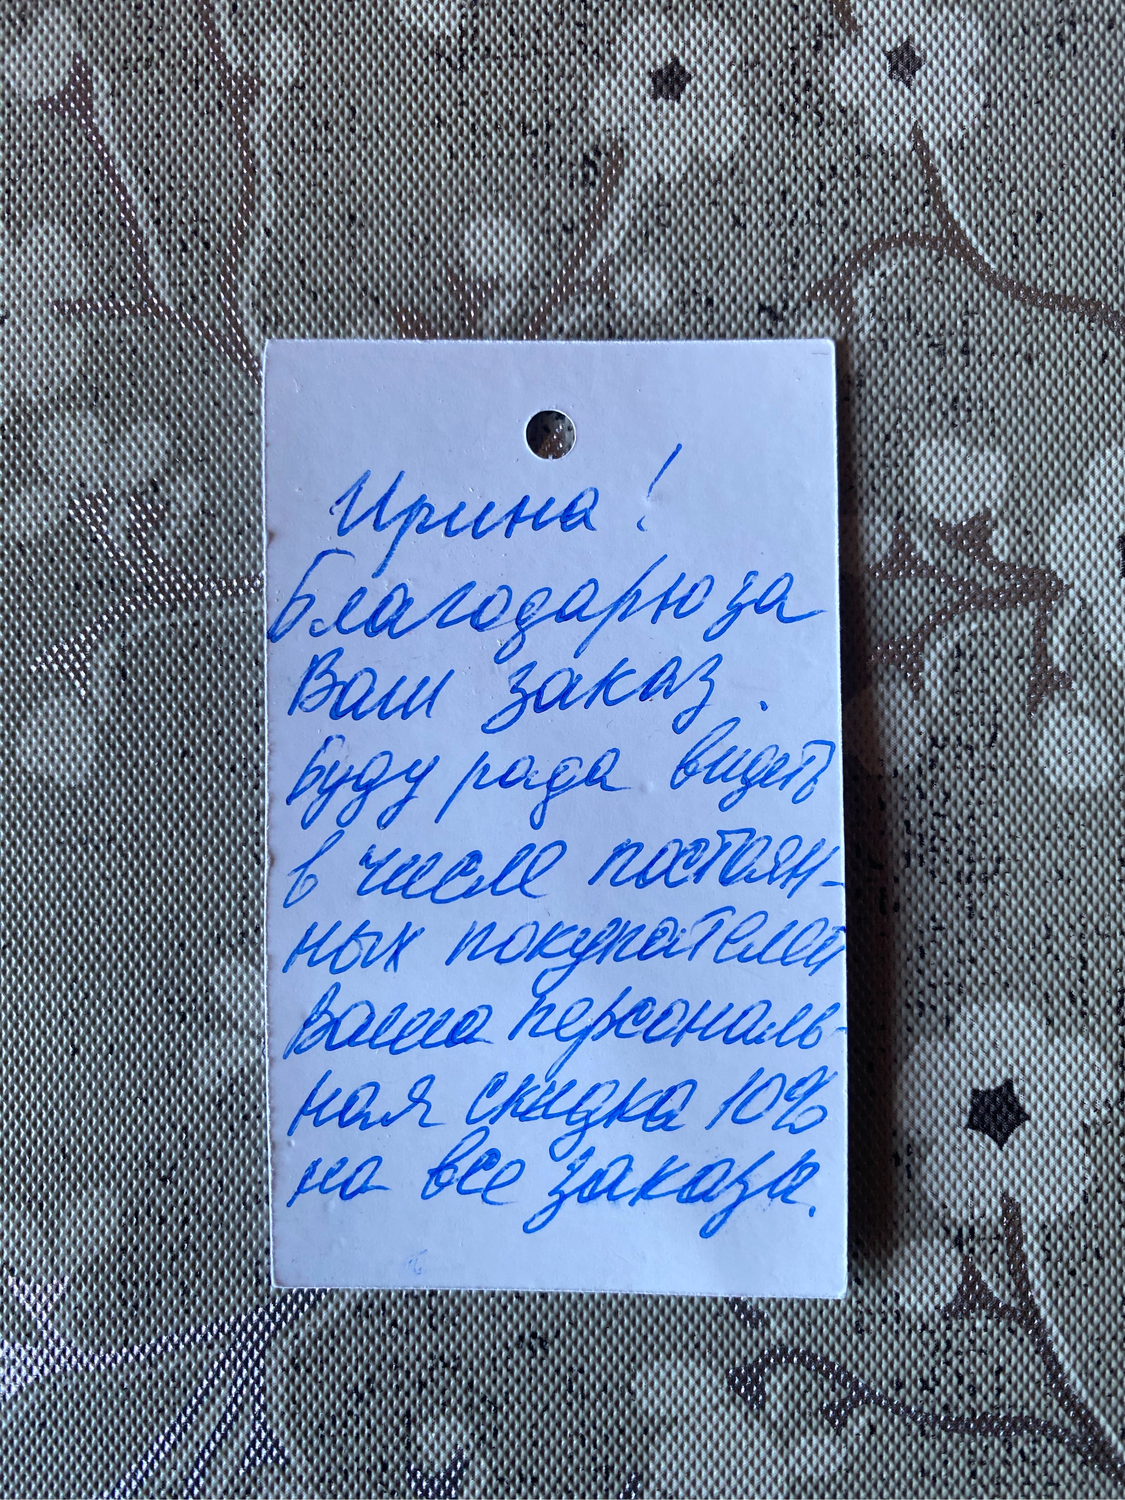 Ирина!
Благодарю за
Ваш заказ.
Буду рада видеть
в числе постоян-
ных покупателей
Ваша персональ-
ная скидка 10%
на все заказы.